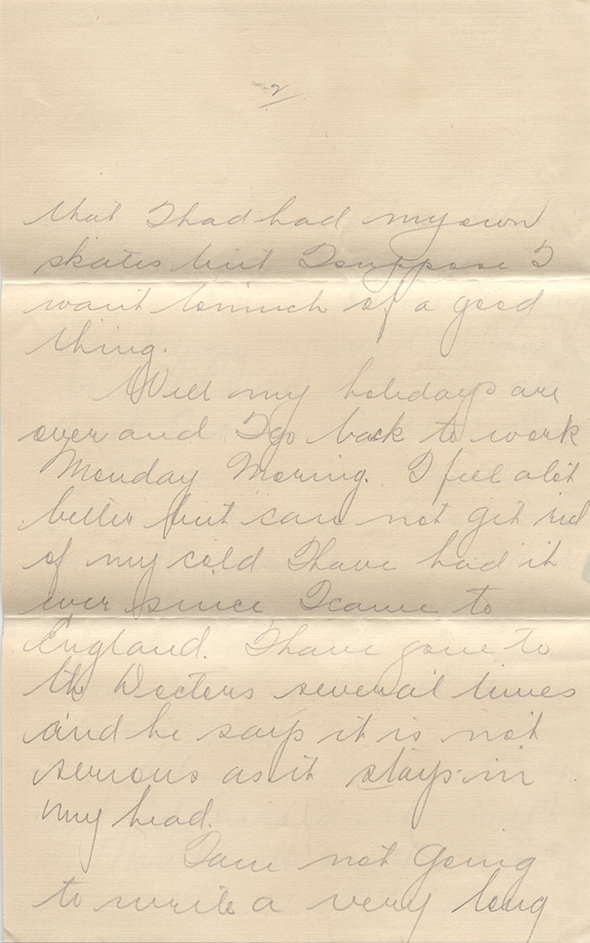 2
that I had had my own
skates but I suppose I
want to much of a good
thing.
Well my holidays are
over and I go back to work
Monday Moring. I feel alot
better but can not get rid
of my cold I have had it
ever since I came to
England. I have gone to
the Docters several times
and he says it is not
serious as it stays in
my head.
I am not Going
to write a very long